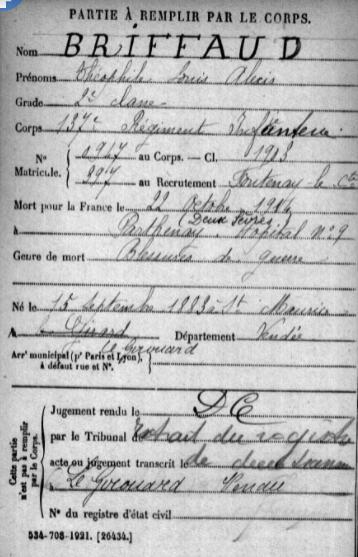 PARTIE À REMPLIR PAR LE CORPS.
Nom BRIFFAUD
Prénoms Théophile Louis Alexis
Grade 2e classe
Corps 137e Régiment Infanterie
N° 0927 au Corps. — Cl. 1903
Matricule. 897 au Recrutement Fontenay le Cte
Mort pour la France le 22 Octobre 1914
(Deux Sèvres)
à Parthenay Hôpital N° 9
Genre de mort Blessures de guerre
Né le 15 septembre 1883 à St Maurice
A Girard Département Vendée
le Girouard
Arrt municipal (pr Paris et Lyon),
à défaut rue et N°.
Cette partie
n'est pas à remplir
par le Corps.
Jugement rendu le DC
par le Tribunal de Extrait du registre
acte ou jugement transcrit le de
Le Girouard Vendée
N° du registre d'état civil
534-708-1921. [26434.]